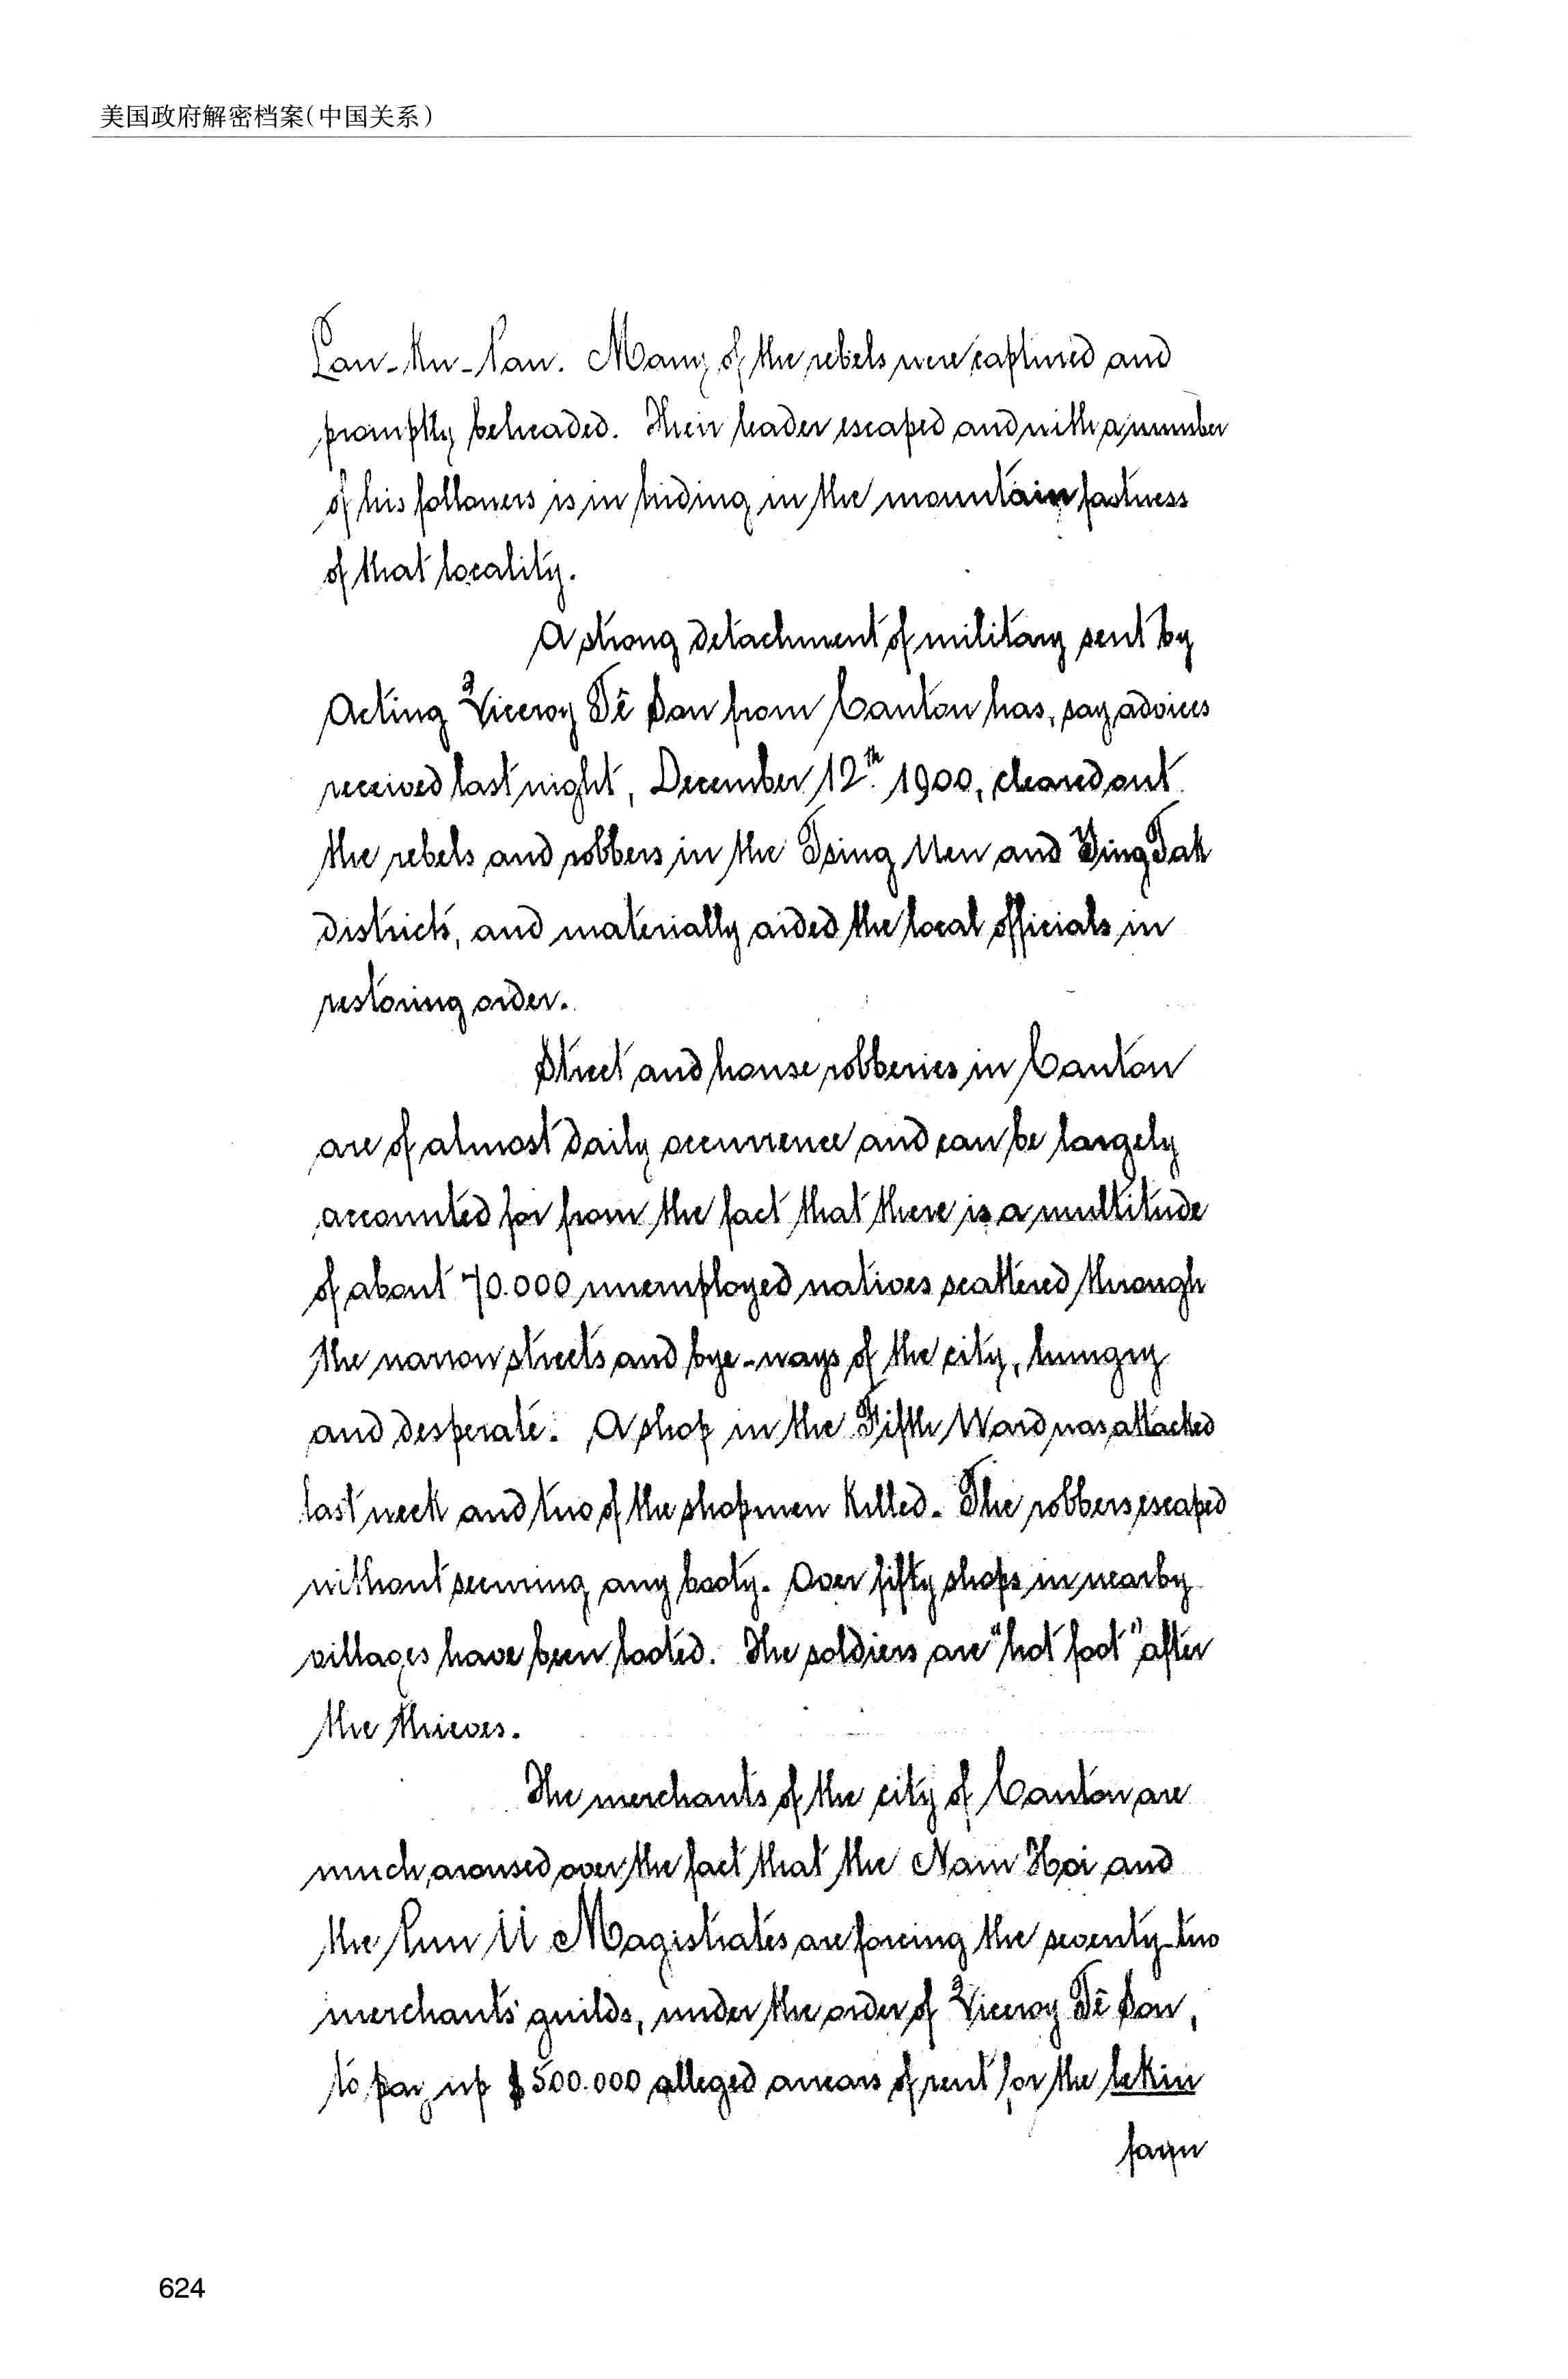 美国政府解密档案(中国关系)
Many of the rebels were captured and
promptly beheaded. Their leader escaped and with a number
of his followers is in hiding in the mountain fastness
of that locality.
A strong detachment of military sent by
Acting Viceroy Tê Sou from Canton has, say advices
received last night, December 12th. 1900, cleared out
the rebels and robbers in the Tsing Uen and Ying Tak
districts, and materially aided the local officials in
restoring order.
Street and house robberies in Canton
are of almost daily occurrence and can be largely
accounted for from the fact that there is a multitude
of about 70.000 unemployed natives scattered through
the narrow streets and bye-ways of the city, hungry
and desperate. A shop in the Fifth Ward was attacked
last week and two of the shopmen killed. The robbers escaped
without securing any booty. Over fifty shops in nearby
villages have been looted. The soldiers are "hot foot" after
the thieves.
The merchants of the city of Canton are
much aroused over the fact that the Nam Hoi and
the Magistrates are forcing the seventy-two
merchants' guilds, under the order of Viceroy Tê Sou,
to pay up $500.000 alleged arrears of rent for the lekin
farm
624